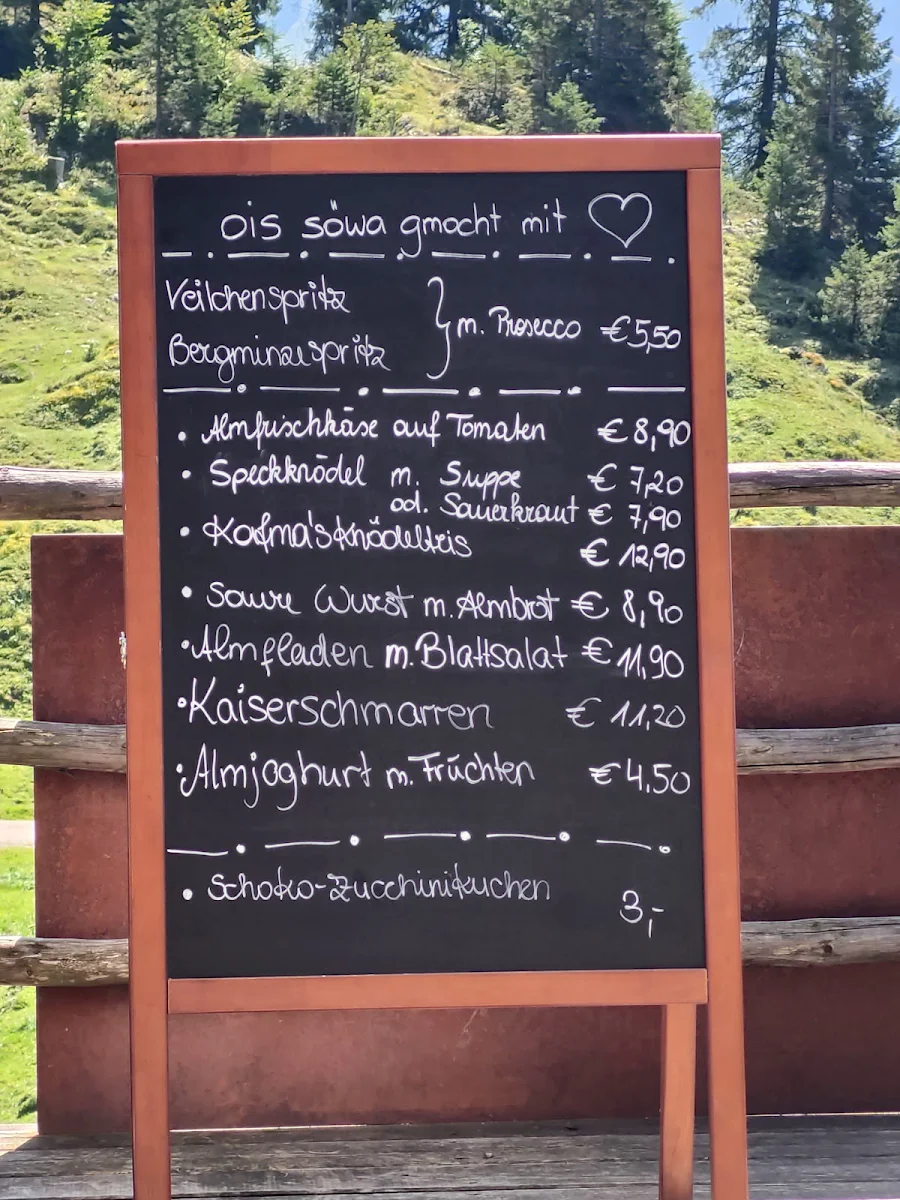 ois söwa gmocht mit ♡
Veilchenspritz
m. Prosecco €5,50
Bergminzespritz
• Almfrischkäse auf Tomaten € 8,90
• Speckknödel m. Suppe € 7,20
od. Sauerkraut € 7,90
• Kofma's Knödeltris € 12,90
• Saure Wurst m. Almbrot € 8,90
• Almfladen m. Blattsalat € 11,90
• Kaiserschmarren € 11,20
• Almjoghurt m. Früchten € 4,50
• Schoko-Zucchinikuchen 3,-